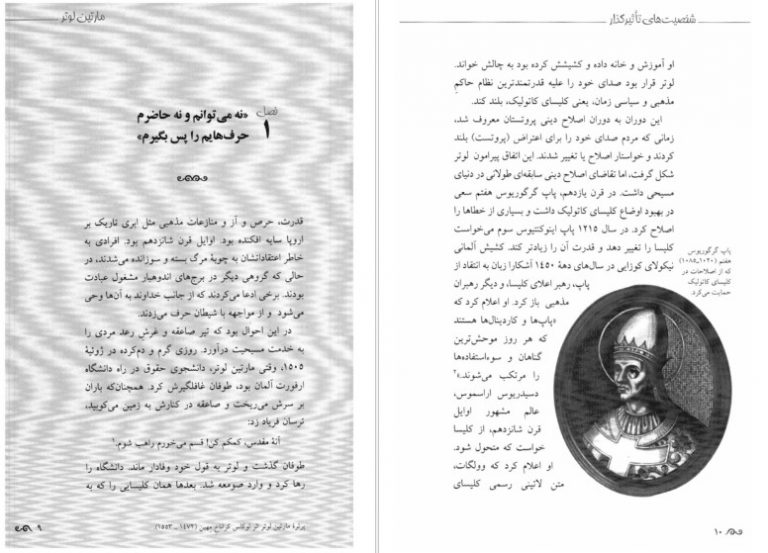 مارتین لوتر
فصل
۱
«نه می‌توانم و نه حاضرم
حرف‌هایم را پس بگیرم»
قدرت، حرص و آز و منازعات مذهبی مثل ابری تاریک بر
اروپا سایه افکنده بود. اوایل قرن شانزدهم بود. افرادی به
خاطر اعتقاداتشان به چوبهٔ مرگ بسته و سوزانده می‌شدند، در
حالی که گروهی دیگر در برج‌های اندوهبار مشغول عبادت
بودند. برخی ادعا می‌کردند که از جانب خداوند به آن‌ها وحی
می‌شود و از مواجهه با شیطان حرف می‌زدند.
در این احوال بود که تیر صاعقه و غرش رعد مردی را
به خدمت مسیحیت درآورد. روزی گرم و دم‌کرده در ژوئیهٔ
۱۵۰۵، وقتی مارتین لوتر، دانشجوی حقوق، در راه دانشگاه
ارفورت آلمان بود، طوفان غافلگیرش کرد. همچنان‌که باران
بر سرش می‌ریخت و صاعقه در کنارش به زمین می‌کوبید،
ترسان فریاد زد:
آنهٔ مقدس، کمکم کن! قسم می‌خورم راهب شوم.۱
طوفان گذشت و لوتر به قول خود وفادار ماند. دانشگاه را
رها کرد و وارد صومعه شد. بعدها همان کلیسایی را که به
پرترهٔ مارتین لوتر اثر لوکاس کراناخ مهین (۱۴۷۲ ـ ۱۵۵۳)
۹
شخصیت‌های تأثیرگذار
او آموزش و خانه داده و کشیشش کرده بود به چالش خواند.
لوتر قرار بود صدای خود را علیه قدرتمندترین نظام حاکم
مذهبی و سیاسی زمان، یعنی کلیسای کاتولیک، بلند کند.
این دوران به دوران اصلاح دینی پروتستان معروف شد،
زمانی که مردم صدای خود را برای اعتراض (پروتست) بلند
کردند و خواستار اصلاح یا تغییر شدند. این اتفاق پیرامون لوتر
شکل گرفت، اما تقاضای اصلاح دینی سابقه‌ای طولانی در دنیای
مسیحی داشت. در قرن یازدهم، پاپ گرگوریوس هفتم سعی
در بهبود اوضاع کلیسای کاتولیک داشت و بسیاری از خطاها را
اصلاح کرد. در سال ۱۲۱۵ پاپ اینوکنتیوس سوم می‌خواست
کلیسا را تغییر دهد و قدرت آن را زیادتر کند. کشیش آلمانی
نیکولای کوزایی در سال‌های دههٔ ۱۴۵۰ آشکارا زبان به انتقاد از
پاپ، رهبر اعلای کلیسا، و دیگر رهبران
مذهبی باز کرد. او اعلام کرد که
«پاپ‌ها و کاردینال‌ها هستند
که هر روز موحش‌ترین
گناهان و سوءاستفاده‌ها
را مرتکب می‌شوند.»۲
دسیدریوس اراسموس،
عالم مشهور اوایل
قرن شانزدهم، از کلیسا
خواست که متحول شود.
او اعلام کرد که وولگات،
متن لاتینی رسمی کلیسای
پاپ گرگوریوس
هفتم (۱۰۲۰ـ۱۰۸۵)
که از اصلاحات در
کلیسای کاتولیک
حمایت می‌کرد.
۱۰